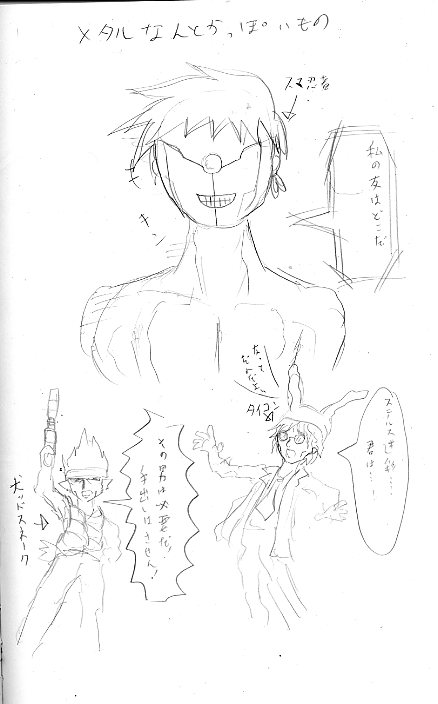 メタルなんとかっぽいもの
スマ忍者
私の友はどこだ
キン
なんて
タイコン
ステルス迷彩…
君は…
その男は必要だ!
手出しはさせん!
ボッドスネーク